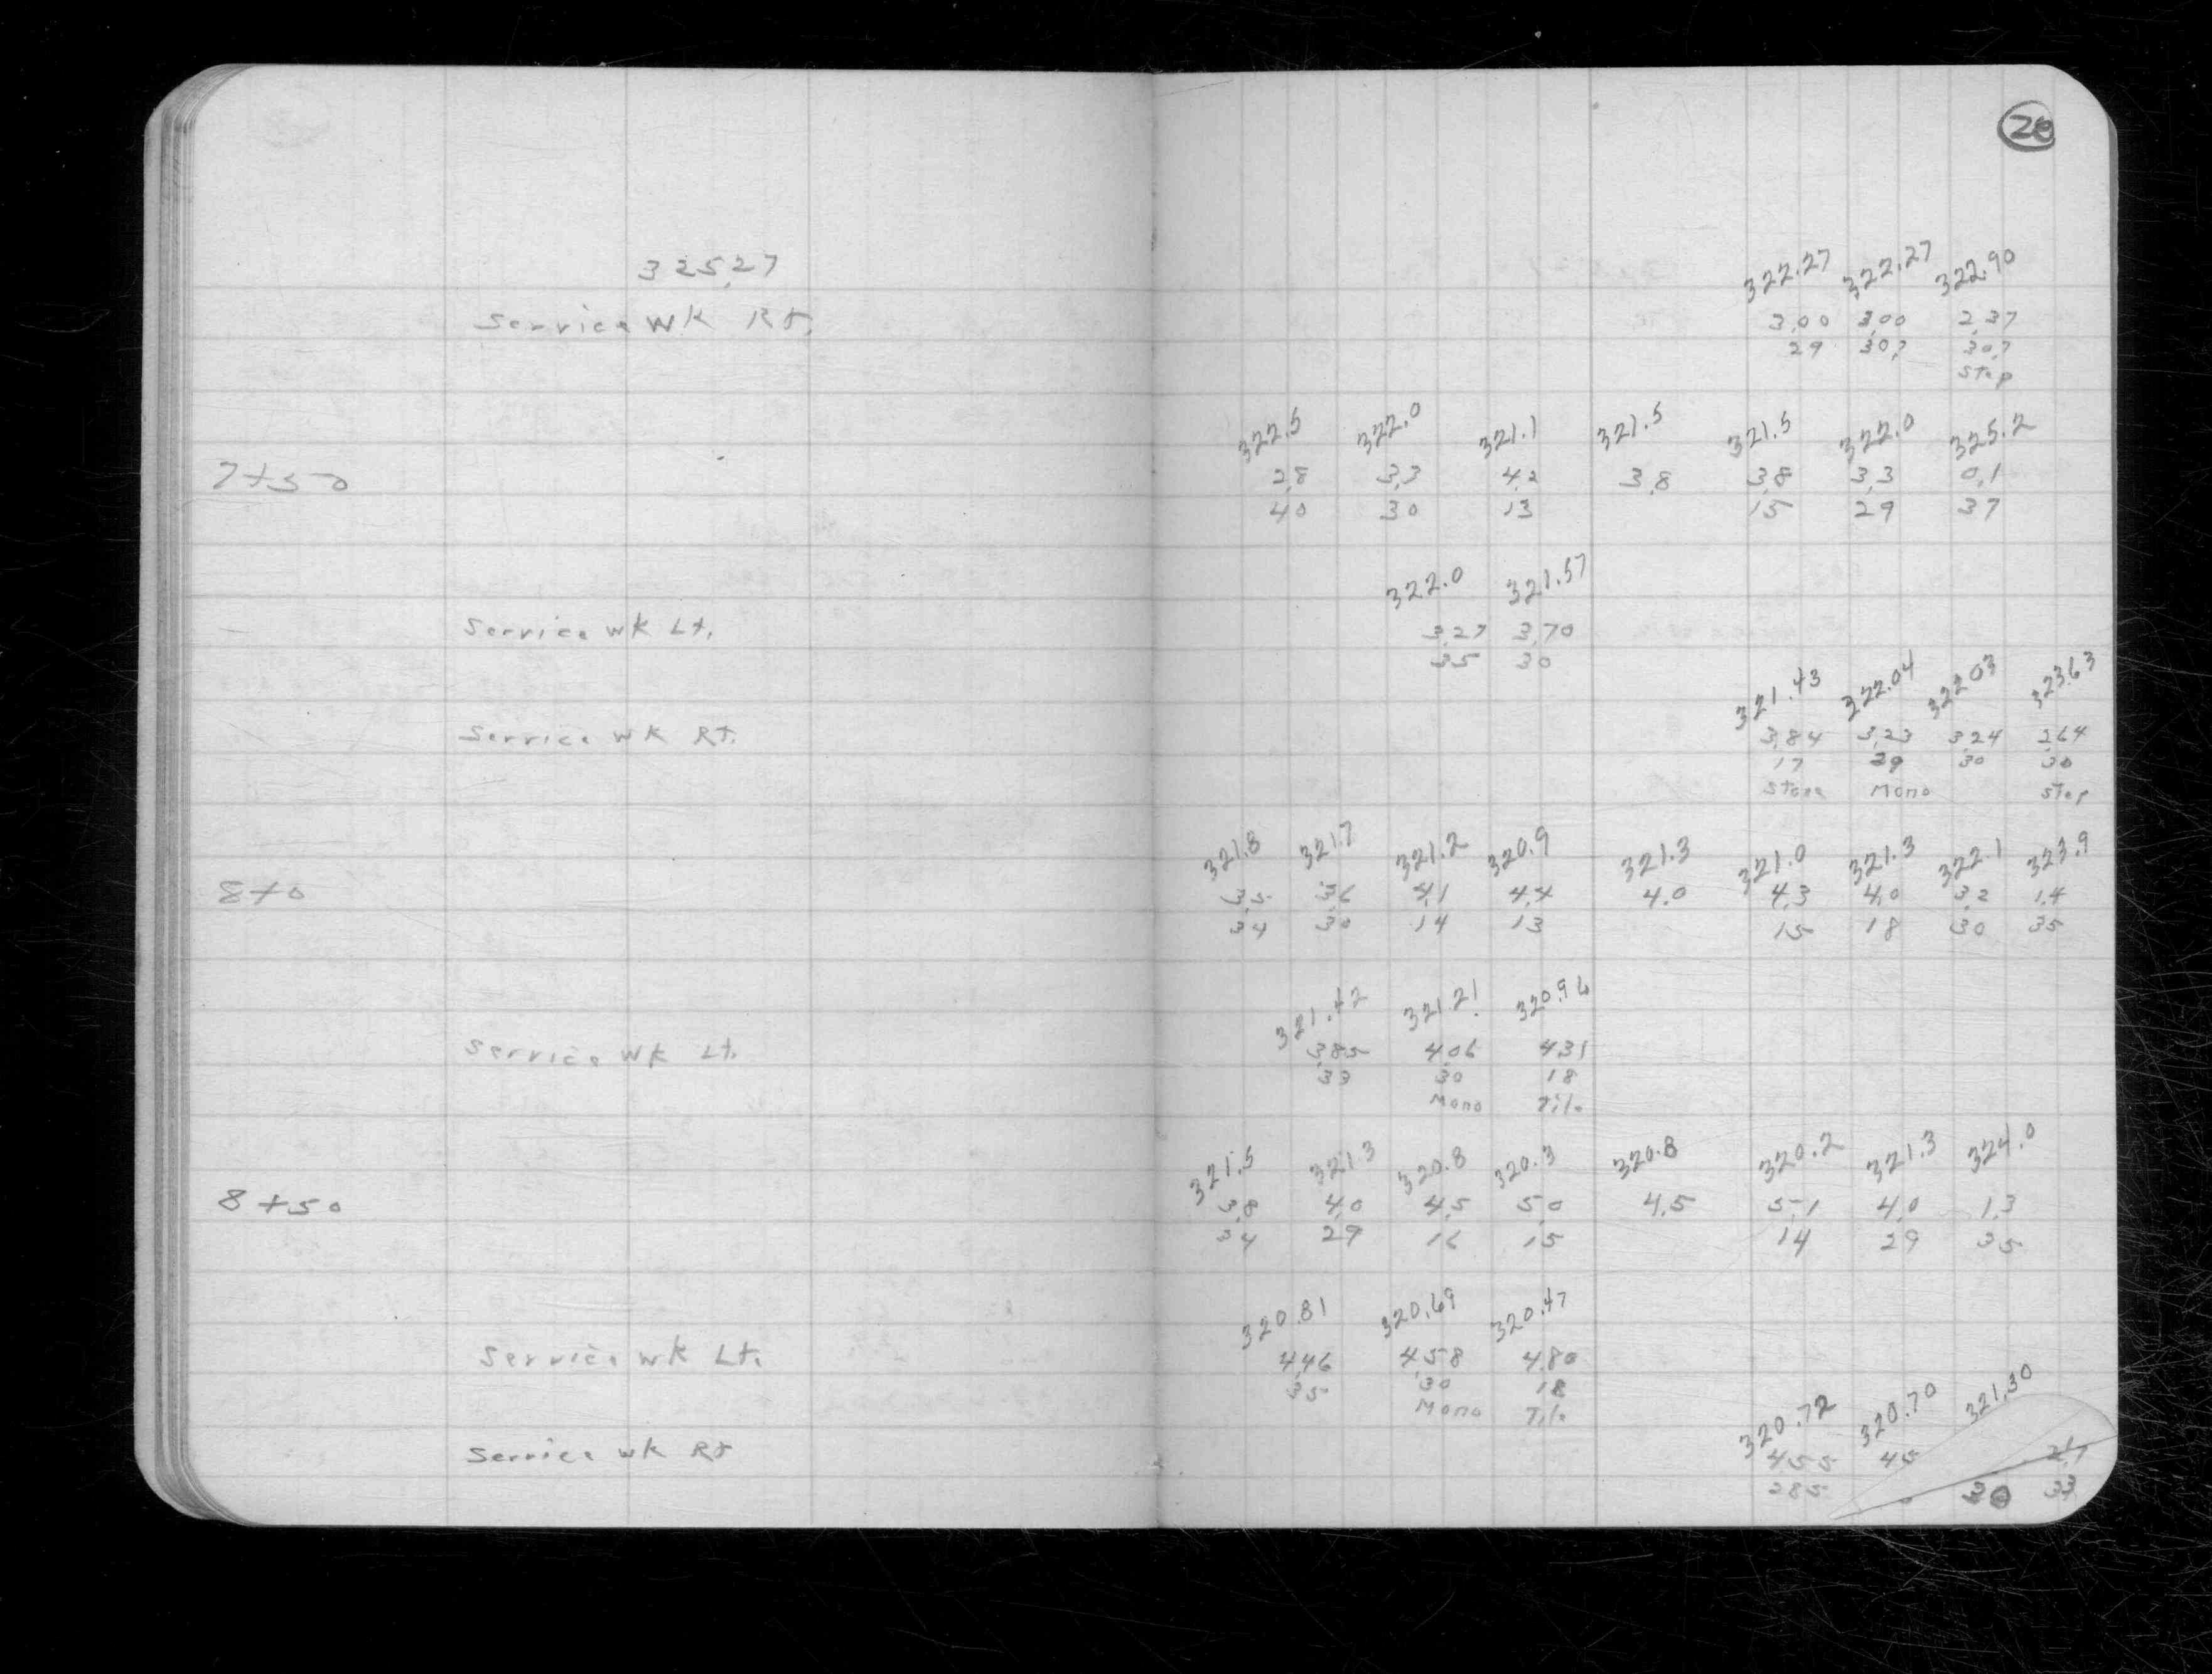 325.27
322.27 322.27 322.90
Service Wk Rt. 3.00 3.00 2.37
29 30.7 30.7
Step
322.5 322.0 321.1 321.5 321.5 322.0 325.2
7+50 2.8 3.3 4.2 3.8 3.8 3.3 0.1
40 30 13 15 29 37
322.0 321.57
Service Wk Lt. 3.27 3.70
35 30
321.43 322.04 322.03 323.63
Service Wk Rt. 3.84 3.23 3.24 264
17 29 30 30
Stone Mono Step
321.8 321.7 321.2 320.9 321.3 321.0 321.3 322.1 323.9
8+0 3.5 3.6 4.1 4.4 4.0 4.3 4.0 3.2 1.4
34 30 14 13 15 18 30 35
321.42 321.21 320.96
Service Wk Lt. 3.85 4.06 4.31
33 30 18
Mono Tile
321.5 321.3 320.8 320.3 320.8 320.2 321.3 324.0
8+50 3.8 4.0 4.5 5.0 4.5 5.1 4.0 1.3
34 29 16 15 14 29 35
320.81 320.69 320.47
Service Wk Lt. 4.46 4.58 4.80
35 30 18
Mono Tile
320.72 320.70 321.30
Service Wk Rt 4.55 45
28.5 33